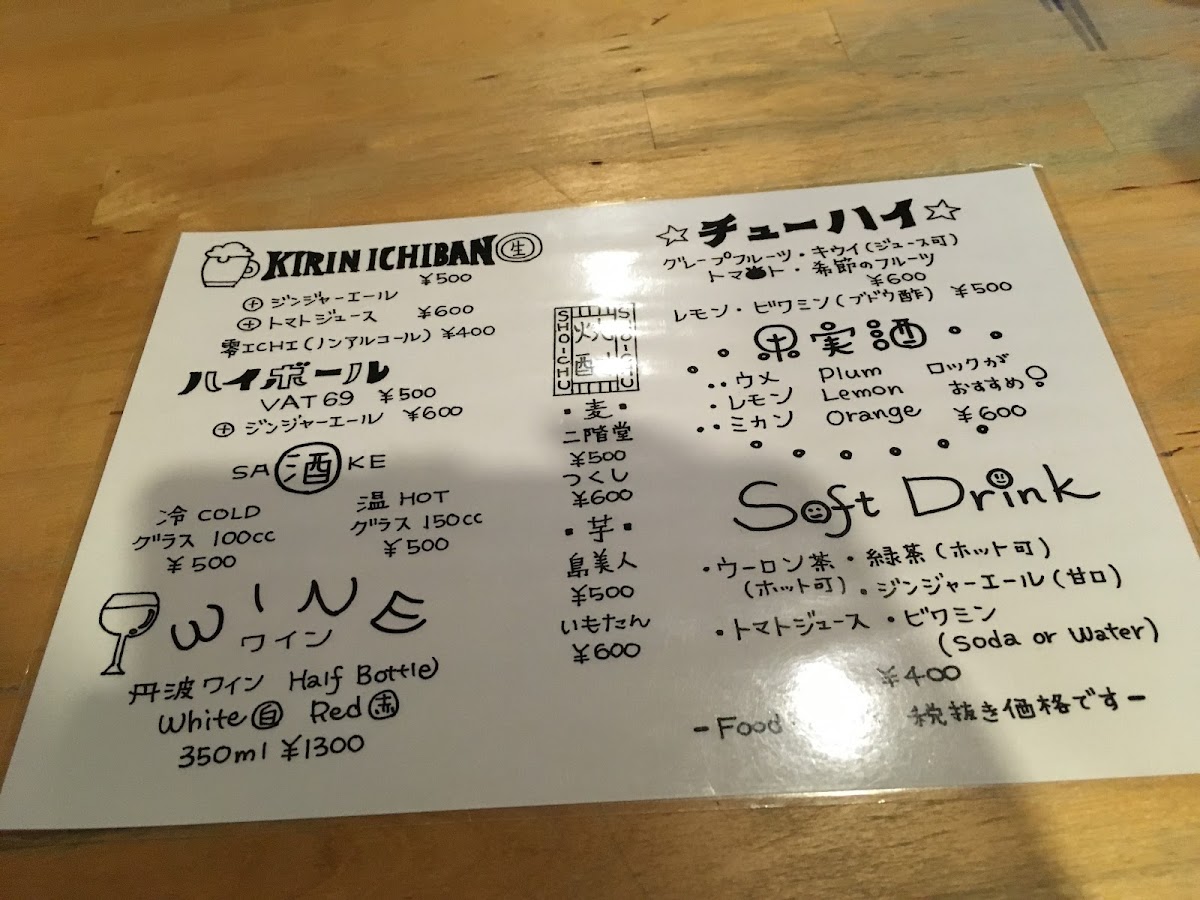 KIRIN ICHIBAN 生
¥500
⊕ ジンジャーエール
⊕ トマトジュース ¥600
零ICHI(ノンアルコール) ¥400
ハイボール
VAT69 ¥500
⊕ ジンジャーエール ¥600
SA 酒 KE
冷 COLD
グラス 100cc
¥500
温 HOT
グラス 150cc
¥500
WINE
ワイン
丹波ワイン Half Bottle
White 白 Red 赤
350ml ¥1300
SHOICHU 焼酎 SHOICHU
・麦・
二階堂
¥500
つくし
¥600
・芋・
島美人
¥500
いもたん
¥600
☆チューハイ☆
グレープフルーツ・キウイ(ジュース可)
トマト・季節のフルーツ
¥600
レモン・ビワミン(ブドウ酢) ¥500
果実酒
・・ウメ Plum ロックが
・レモン Lemon おすすめ!
・・ミカン Orange ¥600
Soft Drink
・ウーロン茶・緑茶(ホット可)
(ホット可)・ジンジャーエール(甘口)
・トマトジュース・ビワミン
(Soda or Water)
¥400
-Food 税抜き価格です-